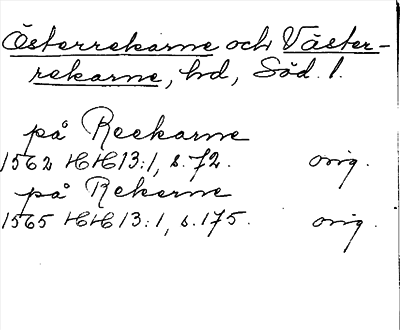 Österrekarne och Väster-
rekarne, hd, Söd. l.
på Reekarne
1562 HH 13:1, s. 72. orig.
på Rekerne
1565 HH 13:1, s. 175. orig.